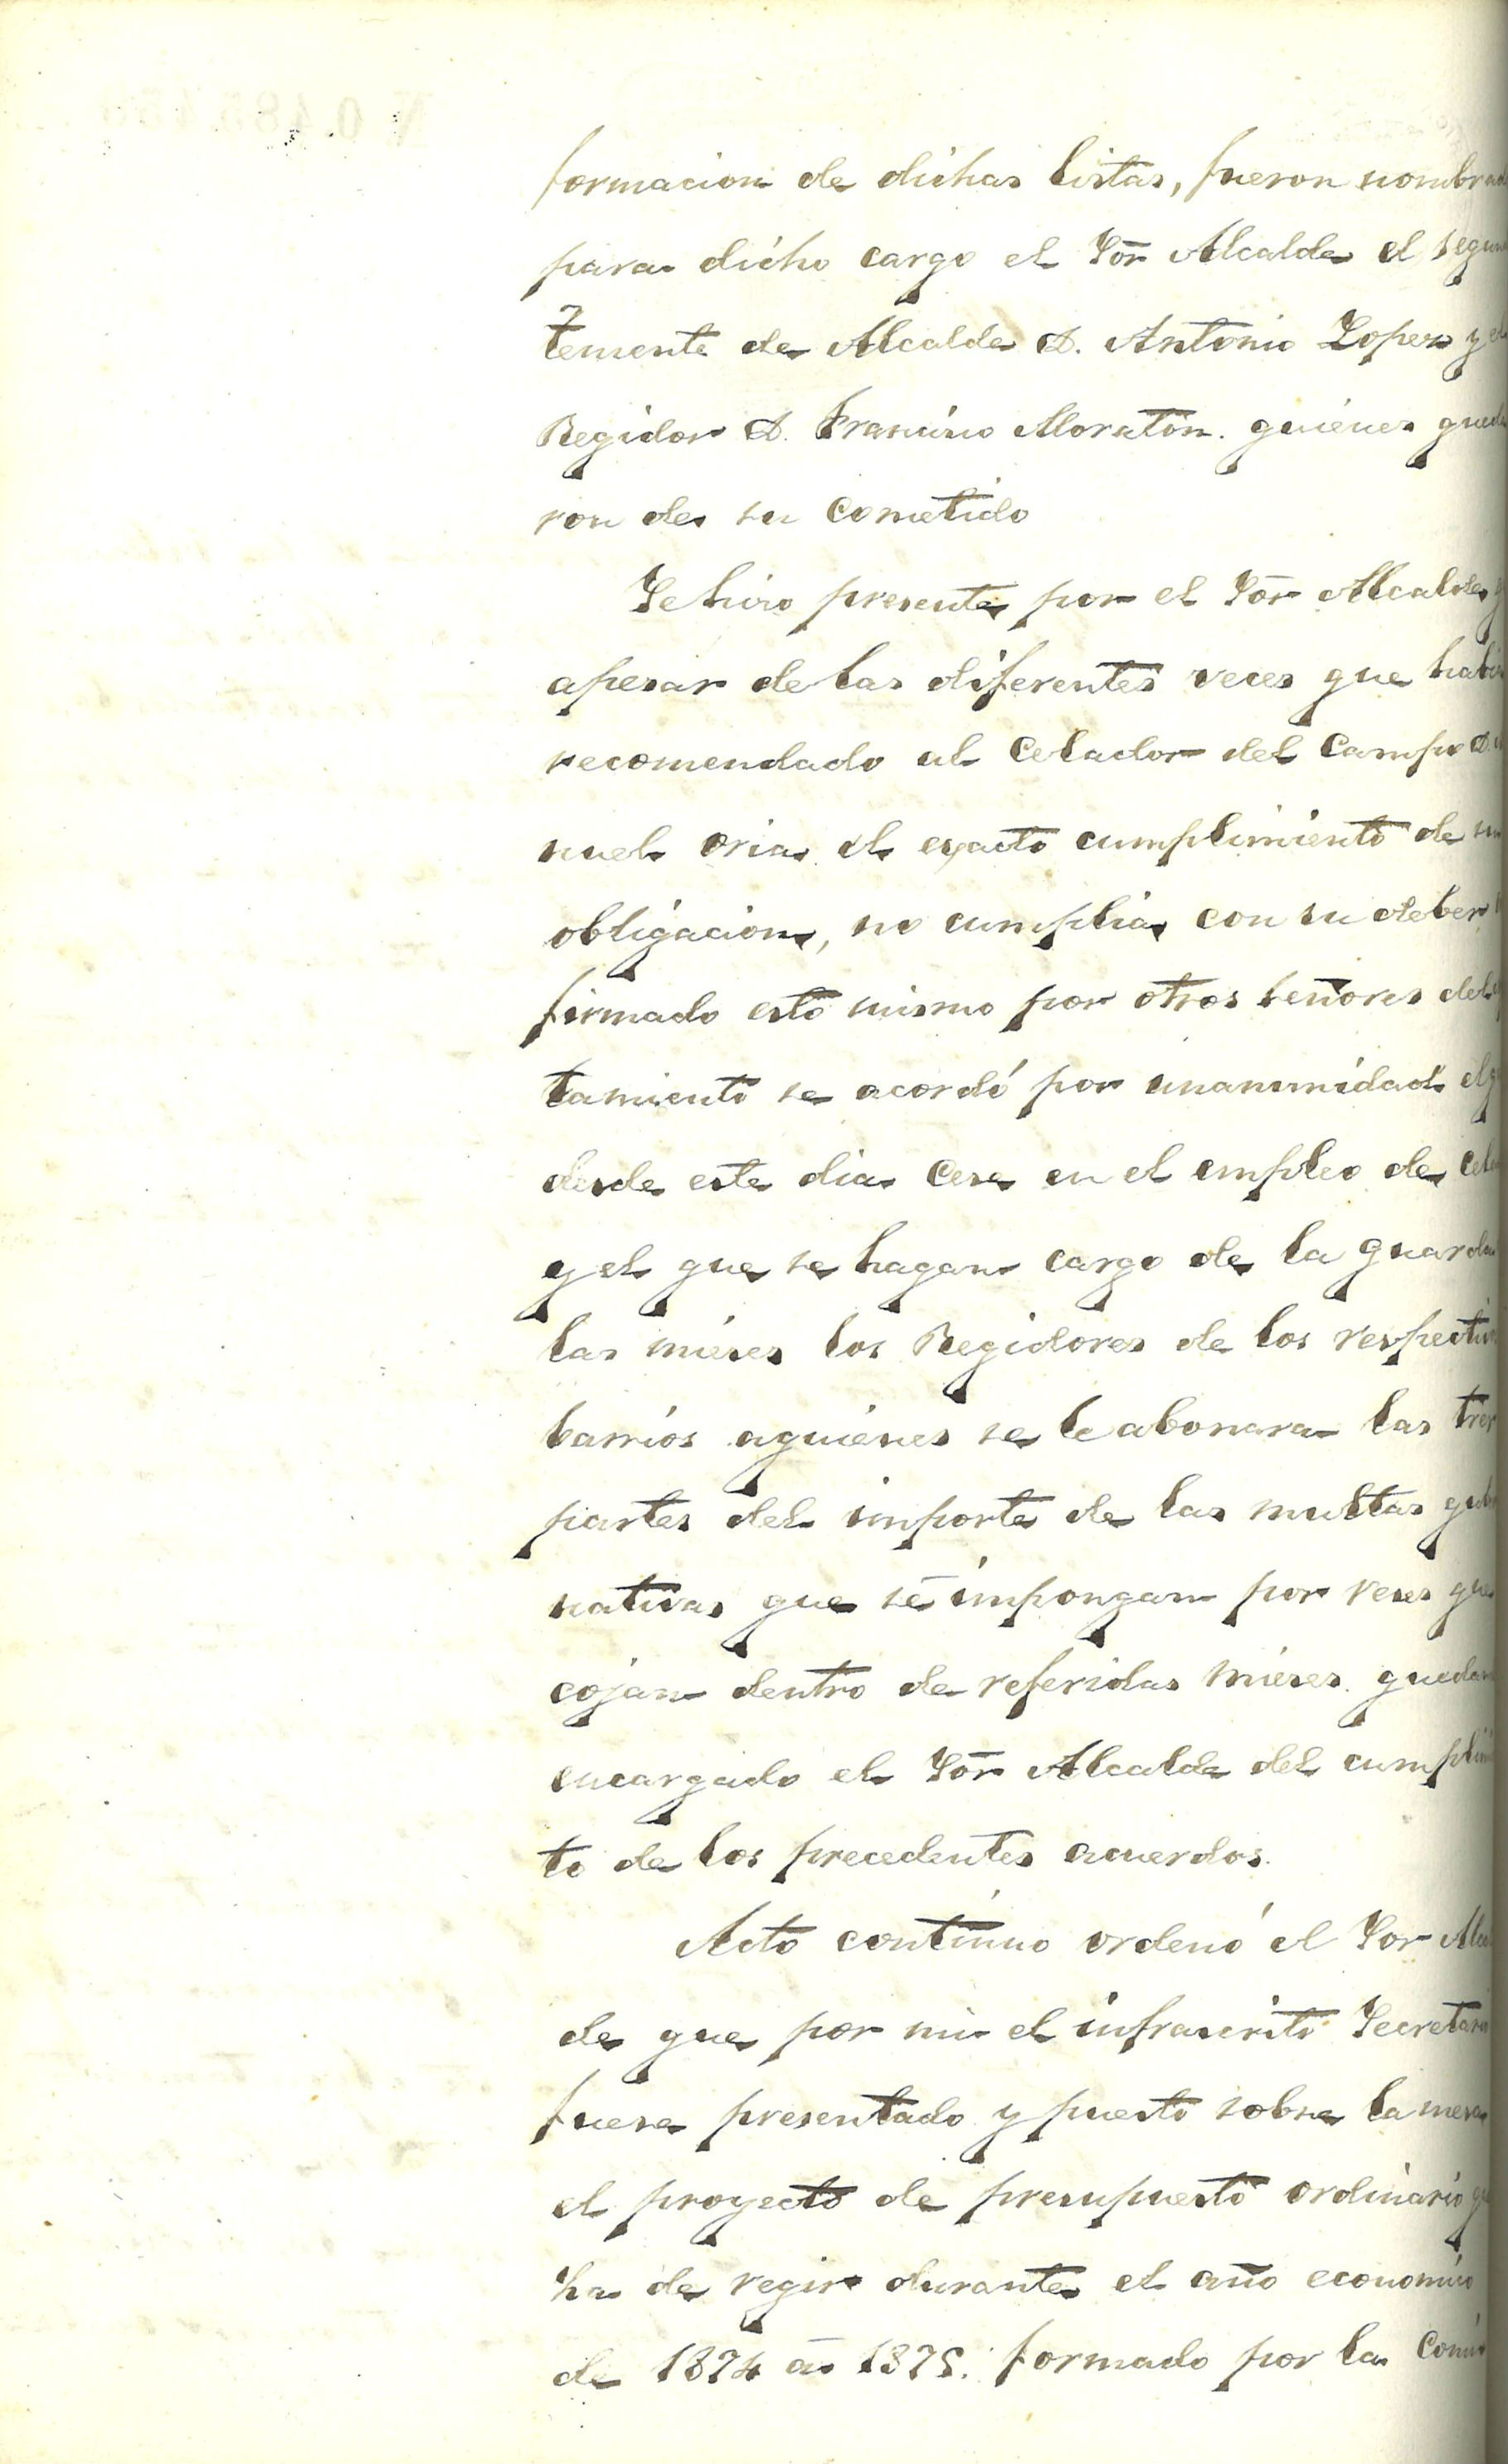 formacion de dichas listas, fueron nombrad
para dicho cargo el Sor Alcalde el segun
teniente de Alcalde D. Antonio Lopez y el
Regidor D. Francisco Moratón. quiénes queda
ron de su cometido
Se hizo presente por el Sor Alcalde, q
apesar de las diferentes veces que habia
recomendado al Celador del Campo D.
nuel oria el exacto cumplimiento de su
obligacion, no cumplia con su deber,
firmado esto mismo por otros señores del
tamiento se acordó por unanimidad el q
desde este dia cese en el empleo de cela
y el que se hagan cargo de la guarda
las miéses los Regidores de los respectiv
barrios aquiénes se le abonara las tres
partes del importe de las multas gub
nativas que se impongan por reses que
cojan dentro de referidas miéses. quedan
encargado el Sor Alcalde del cumplimi
to de los precedentes acuerdos.
Acto contínuo ordenó el Sor Alcal
de que por mi el infrascrito Secretari
fuese presentado y puesto sobre la mesa
el proyecto de presupuesto ordinario q
ha de regir durante el año economico
de 1874 a 1875. formado por la Comi